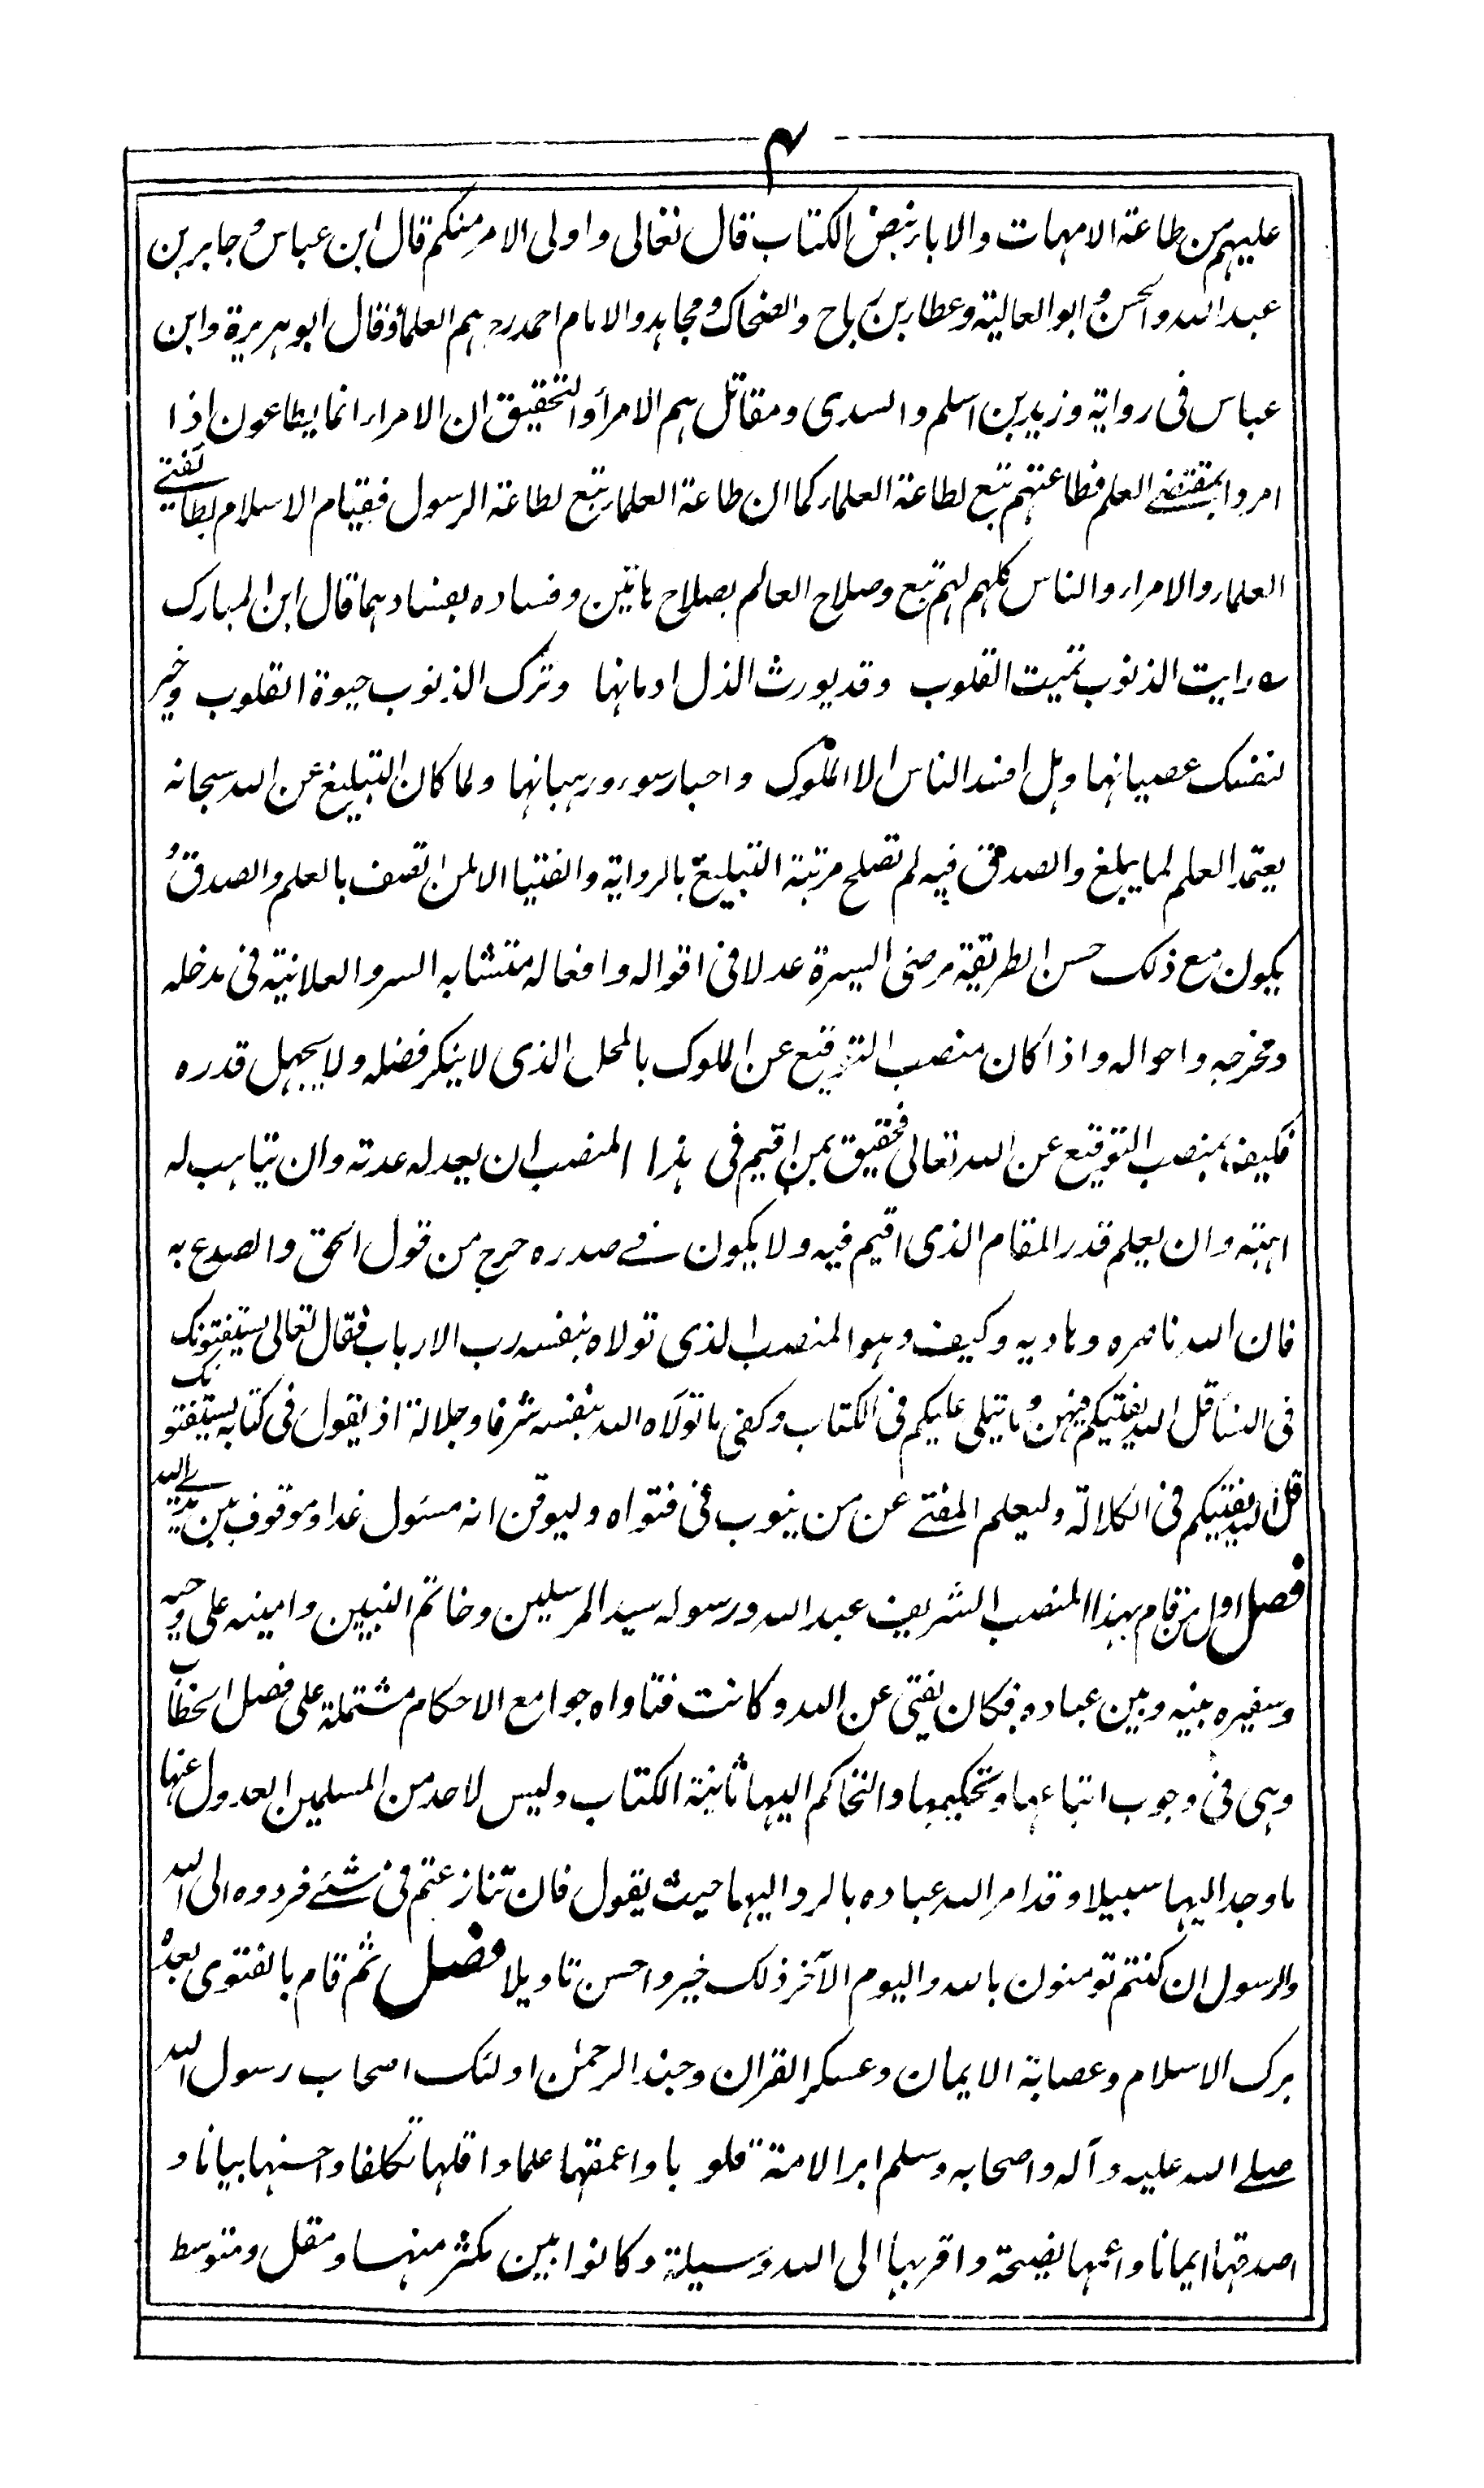 ۴
عليهم من طاعة الامهات والاباء بنص الكتاب قال تعالى واولى الامر منكم قال ابن عباس وجابر بن
عبد الله والحسن وابو العالية وعطاء بن رباح والضحاك ومجاهد والامام احمد رح هم العلماء وقال ابو هريرة وابن
عباس فى رواية وزيد بن اسلم والسدى ومقاتل هم الامراء والتحقيق ان الامراء انما يطاعون اذا
امروا بمقتضى العلم فطاعتهم تبع لطاعة العلماء كما ان طاعة العلماء تبع لطاعة الرسول فقيام الاسلام بطائفتى
العلماء والامراء والناس كلهم لهم تبع وصلاح العالم بصلاح هاتين وفساده بفسادهما قال ابن المبارك
ے رايت الذنوب تميت القلوب وقد يورث الذل ادمانها وترك الذنوب حيوة القلوب وخير
لنفسك عصيانها وهل افسد الناس الا الملوك واحبار سوء ورهبانها ولما كان التبليغ عن الله سبحانه
يعتمد العلم لما يبلغ والصدق فيه لم تصلح مرتبة التبليغ بالرواية والفتيا الا لمن اتصف بالعلم والصدق و
يكون مع ذلك حسن الطريقة مرضى السيرة عدلا فى اقواله وافعاله متشابه السر والعلانية فى مدخله
ومخرجه واحواله واذا كان منصب التوقيع عن الملوك بالمحل الذى لا ينكر فضله ولا يجهل قدره
فكيف بمنصب التوقيع عن الله تعالى فحقيق بمن اقيم فى هذا المنصب ان يعد له عدته وان يتاهب له
اهبته وان يعلم قدر المقام الذى اقيم فيه ولا يكون فى صدره حرج من قول الحق والصدع به
فان الله ناصره وهاديه وكيف وهو المنصب الذى تولاه بنفسه رب الارباب فقال تعالى يستفتونك
فى النساء قل الله يفتيكم فيهن وما يتلى عليكم فى الكتاب وكفى ما تولاه الله بنفسه شرفا وجلالة اذ يقول فى كتابه يستفتونك
قل الله يفتيكم فى الكلالة وليعلم المفتى عن من ينوب فى فتواه وليوقن انه مسئول غدا وموقوف بين يدى الله
فصل اول من قام بهذا المنصب الشريف عبد الله ورسوله سيد المرسلين وخاتم النبيين وامينه على وحيه
وسفيره بينه وبين عباده فكان يفتى عن الله وكانت فتاواه جوامع الاحكام مشتملة على فصل الخطاب
وهى فى وجوب اتباعها وتحكيمها والتحاكم اليها ثانية الكتاب وليس لاحد من المسلمين العدول عنها
ما وجد اليها سبيلا وقد امر الله عباده بالرد اليها حيث يقول فان تنازعتم فى شئ فردوه الى الله
والرسول ان كنتم تومنون بالله واليوم الآخر ذلك خير واحسن تاويلا فصل ثم قام بالفتوى بعده
برك الاسلام وعصابة الايمان وعسكر القران وجند الرحمن اولئك اصحاب رسول الله
صلى الله عليه وآله واصحابه وسلم ابر الامة قلوبا واعمقها علما واقلها تكلفا واحسنها بيانا و
اصدقها ايمانا واعمها نصيحة واقربها الى الله وسيلة وكانوا بين مكثر منها ومقل ومتوسط